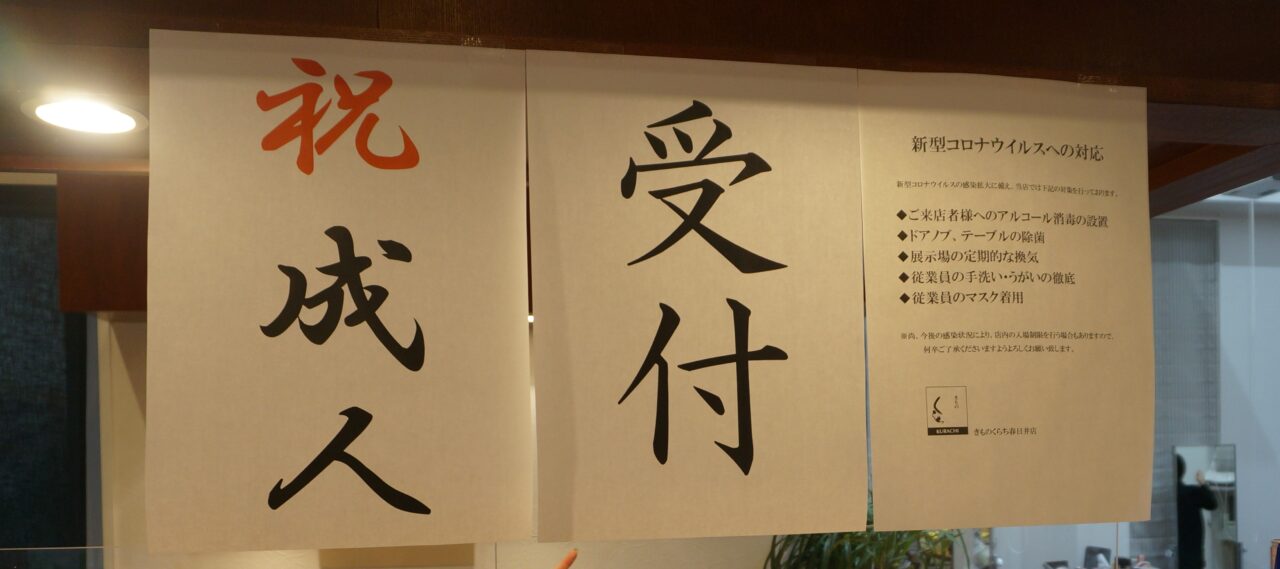 祝成人
受付
新型コロナウイルスへの対応
新型コロナウイルスの感染拡大に備え、当店では下記の対策を行っております。
◆ご来店者様へのアルコール消毒の設置
◆ドアノブ、テーブルの除菌
◆展示場の定期的な換気
◆従業員の手洗い・うがいの徹底
◆従業員のマスク着用
※尚、今後の感染状況により、店内の入場制限を行う場合もありますので、
何卒ご了承くださいますようよろしくお願い致します。
きもの
KURACHI
きものくらち春日井店